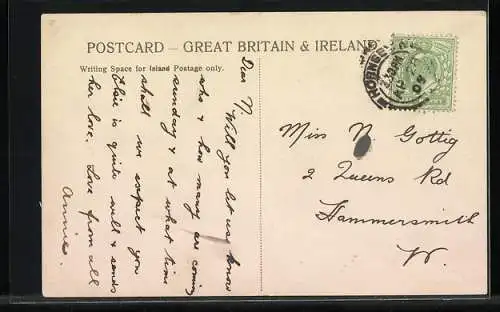 POSTCARD – GREAT BRITAIN & IRELAND
Writing Space for Island Postage only.
Dear N. Will you let us know
who & how many are coming
sunday & at what time
shall we expect you
Elsie is quite well & sends
her love. Love from all
Annie.
HORNSEY
8.30 PM
08
Miss N Gottig
2 Queens Rd
Hammersmith
W.